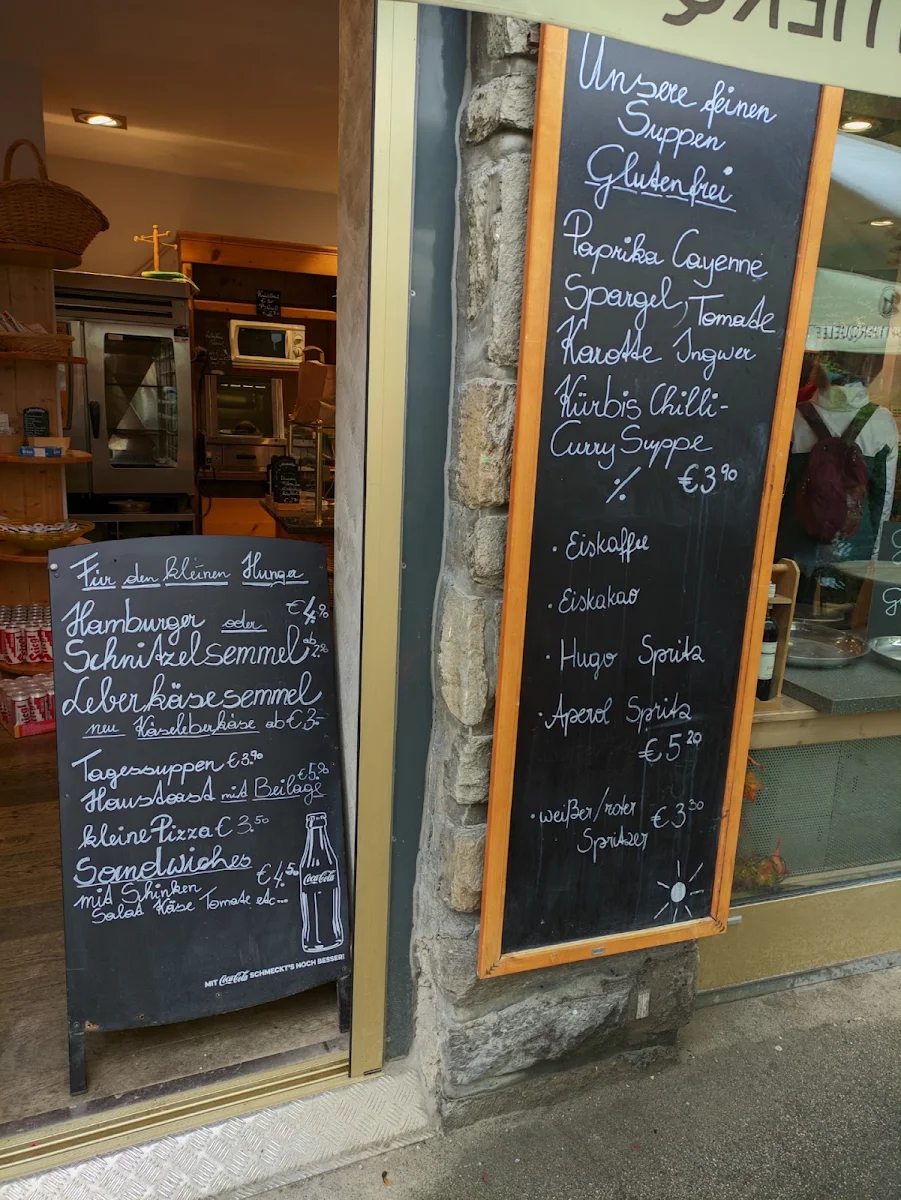 Für den kleinen Hunger
Hamburger oder €4,90
Schnitzelsemmel
Leberkäsesemmel
neu Käseleberkäse ab €3,-
Tagessuppen €3,90
Haustoast mit Beilage €5,90
kleine Pizza €3,50
Sandwiches
mit Schinken €4,50
Salat Käse Tomate etc...
Coca-Cola
MIT Coca-Cola SCHMECKT'S NOCH BESSER!
Unsere feinen
Suppen
Glutenfrei
Paprika Cayenne
Spargel, Tomate
Karotte Ingwer
Kürbis Chilli-
Curry Suppe
⁒ €3,90
· Eiskaffee
· Eiskakao
· Hugo Spritz
· Aperol Spritz
€5,20
· weißer/roter €3,50
Spritzer